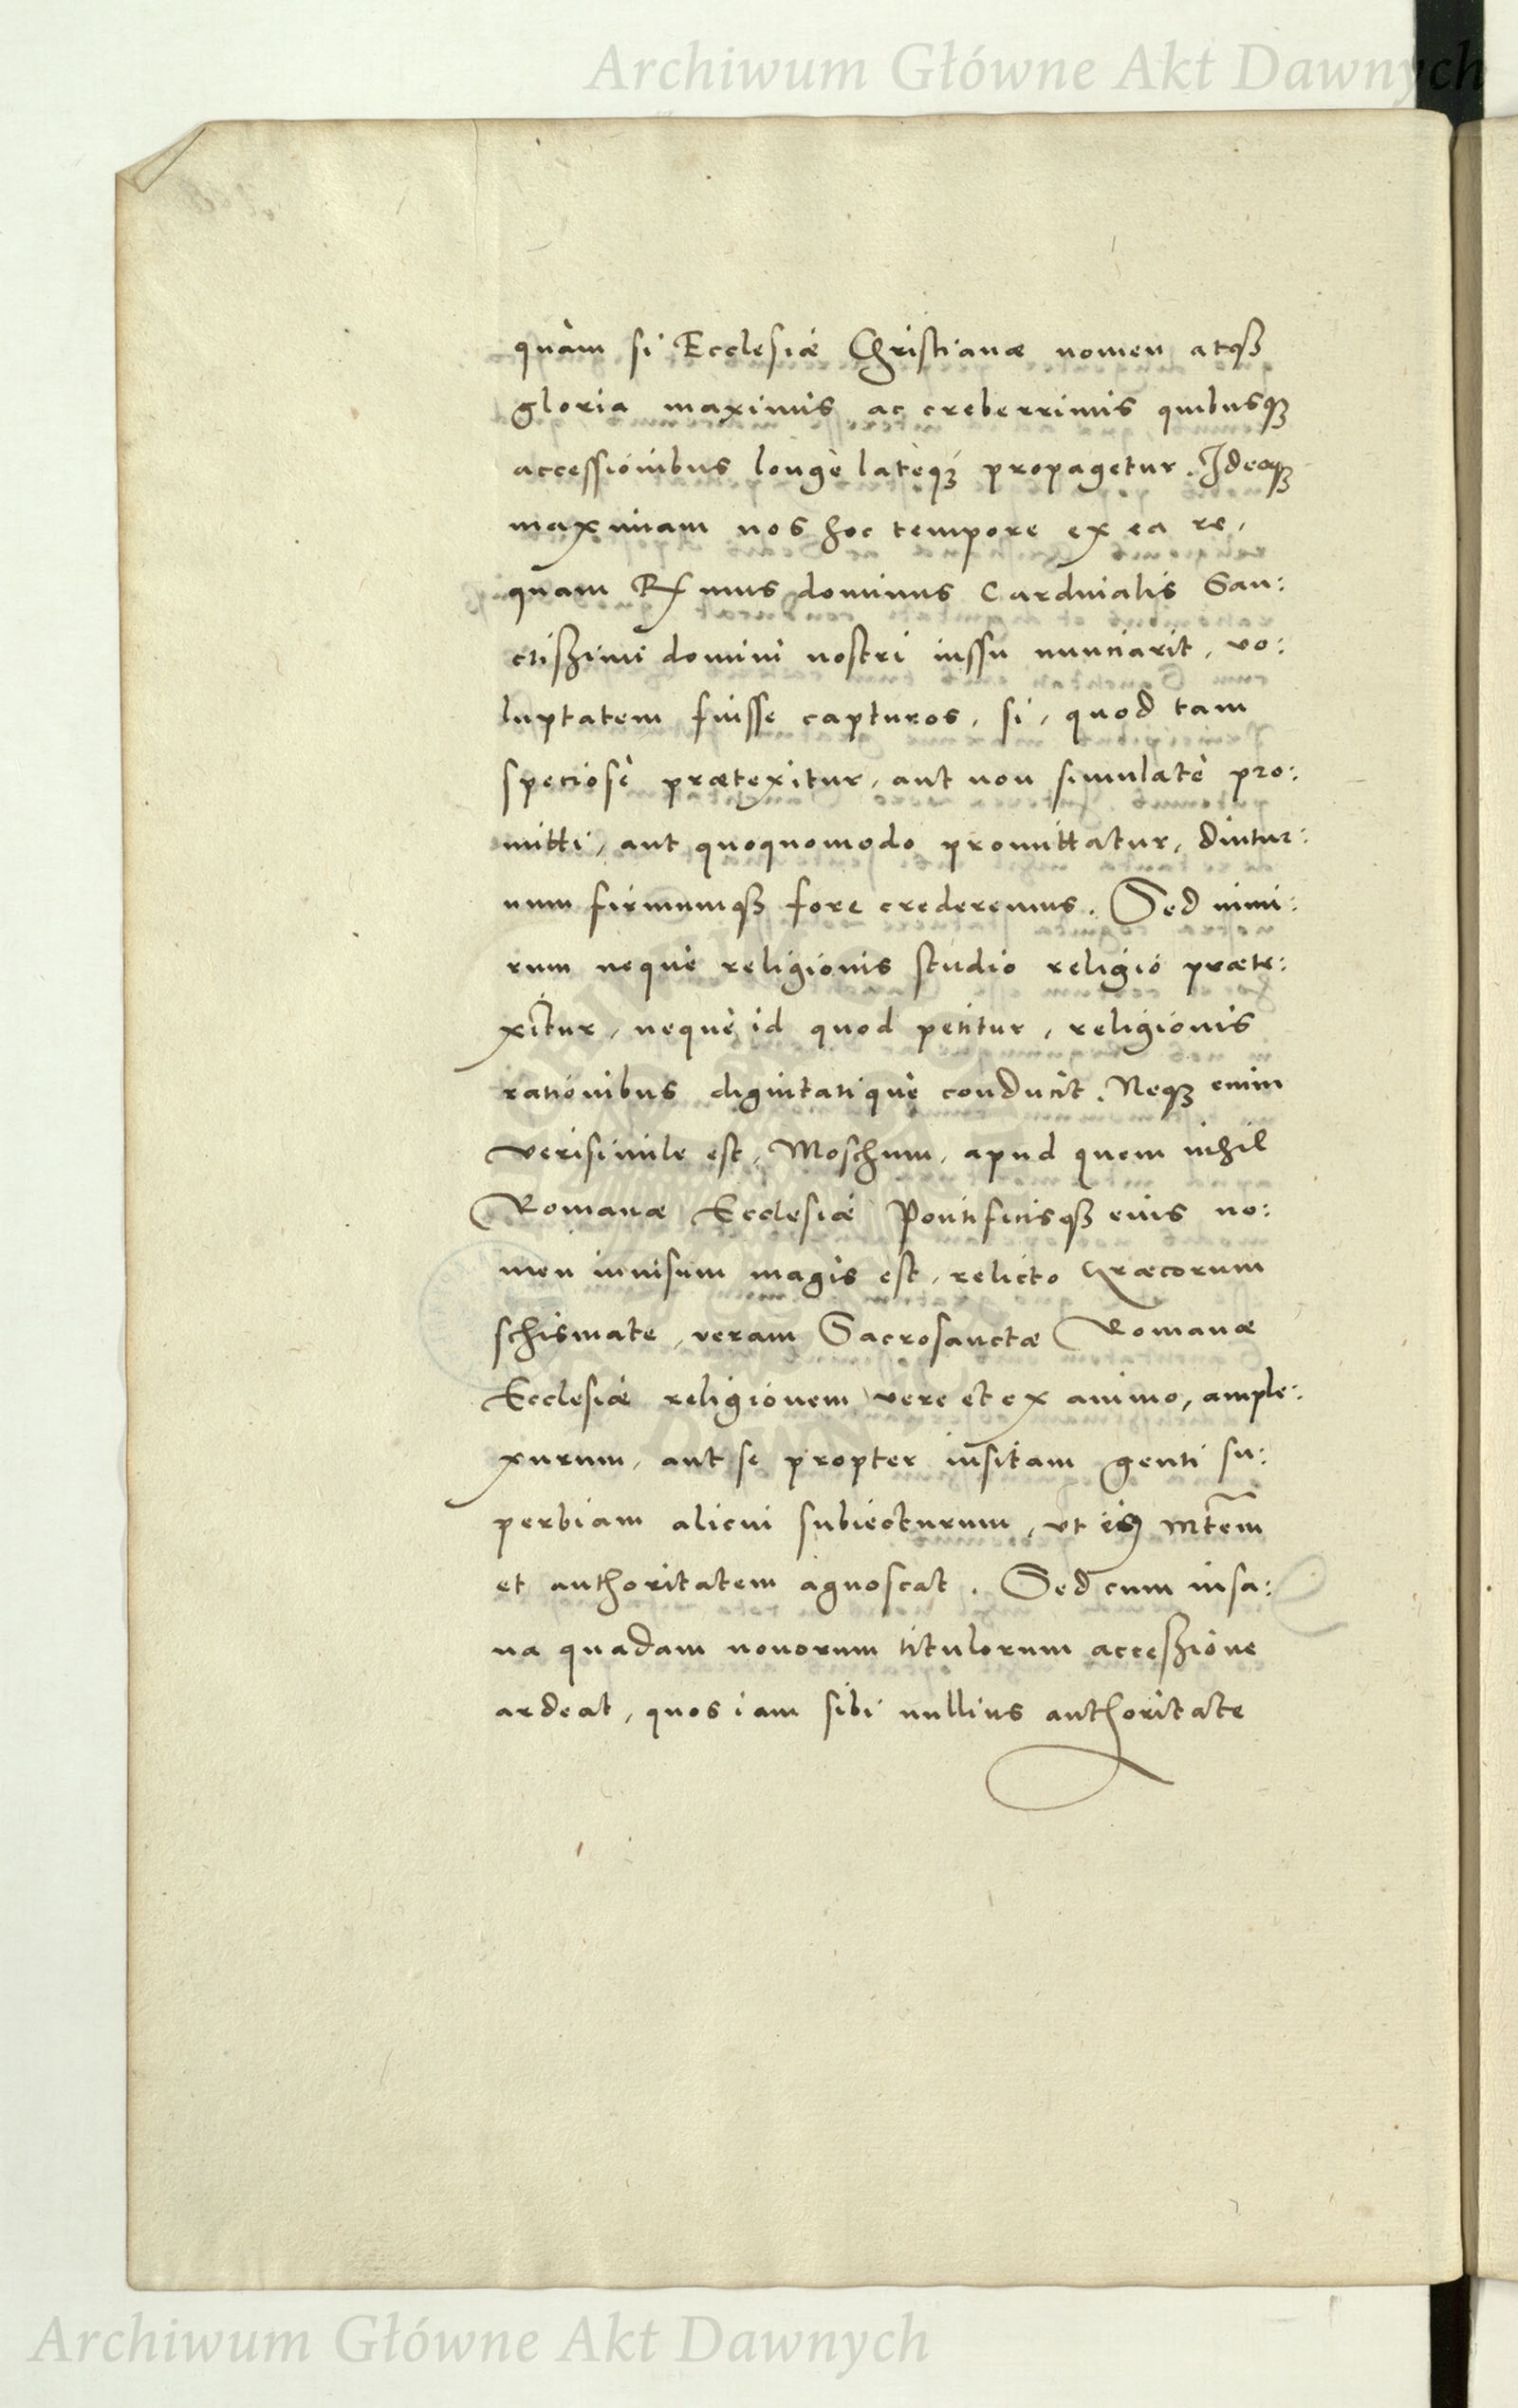 Archiwum Główne Akt Dawnych
quàm si Ecclesiæ Christianæ nomen atqꝫ
gloria maximis ac creberrimis quibusqꝫ
accessionibus longè lateqꝫ propagetur. Ideoqꝫ
maximam nos hoc tempore ex ea re,
quam R mus dominus Cardinalis San:
ctißimi domini nostri iussu nunciarit, vo:
luptatem fuisse capturos, si, quod tam
speciosè prætexitur, aut non simulatè pro:
mitti, aut quoquomodo promittatur, diutur:
num firmumqꝫ fore crederemus. Sed nimi:
rum neque religionis studio religio præte:
xitur, neque id quod petitur, religionis
rationibus dignitatique conducit. Neqꝫ enim
verisimile est, Moschum, apud quem nihil
Romanæ Ecclesiæ Pontificisqꝫ eius no:
men inuisum magis est, relicto Græcorum
schismate, veram Sacrosanctæ Romanæ
Ecclesiæ religionem vere et ex animo, ample:
xurum, aut se propter insitam genti su:
perbiam alicui subiecturum, vt eiꝰ Mtem
et authoritatem agnoscat. Sed cum insa:
na quadam nouorum titulorum acceßione
ardeat, quos iam sibi nullius authoritate
Archiwum Główne Akt Dawnych